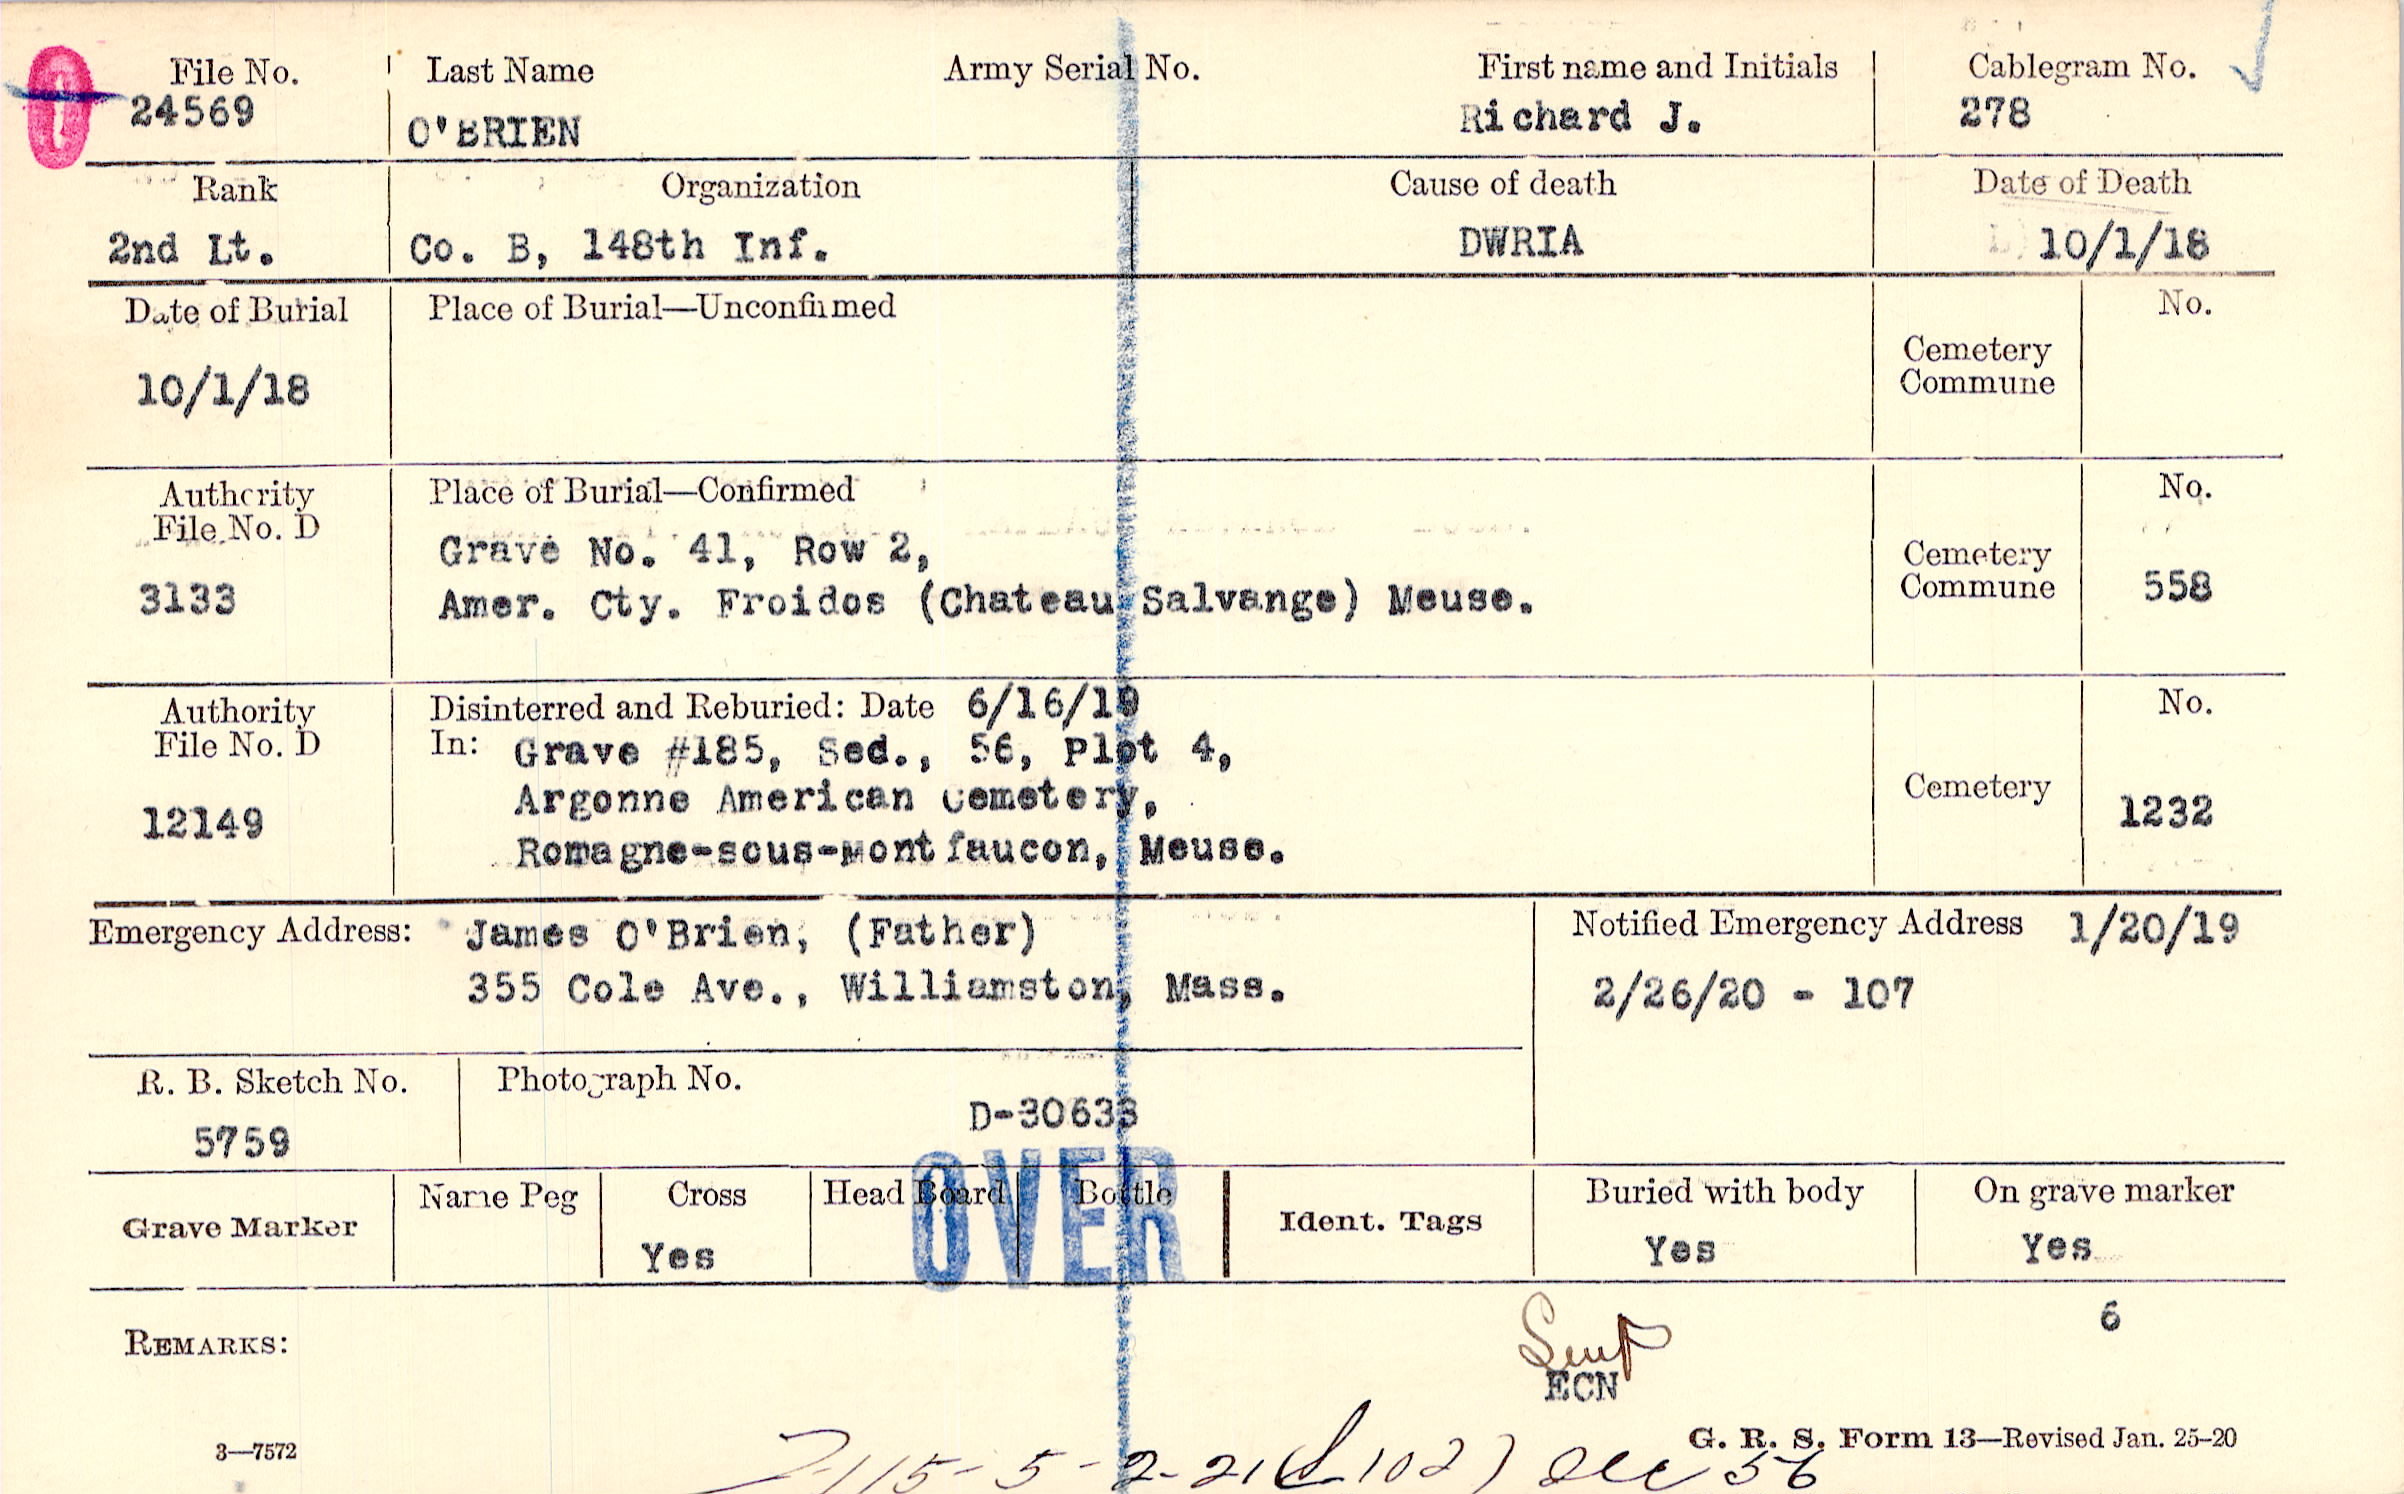 File No. Last Name Army Serial No. First name and Initials Cablegram No.
24569 O'BRIEN Richard J. 278
Rank Organization Cause of death Date of Death
2nd Lt. Co. B, 148th Inf. DWRIA 10/1/18
Date of Burial Place of Burial—Unconfirmed No.
Cemetery
Commune
10/1/18
Authority Place of Burial—Confirmed No.
File No. D
Grave No. 41, Row 2, Cemetery
3133 Amer. Cty. Froidos (Chateau Salvange) Meuse. Commune 558
Authority Disinterred and Reburied: Date 6/16/19 No.
File No. D In: Grave #185, Sed., 56, Plot 4,
Argonne American Cemetery, Cemetery
12149 Romagne-sous-Montfaucon, Meuse. 1232
Emergency Address: James O'Brien, (Father) Notified Emergency Address 1/20/19
355 Cole Ave., Williamston, Mass. 2/26/20 - 107
R. B. Sketch No. Photograph No.
5759 D-30633
OVER
Grave Marker Name Peg Cross Head Board Bottle Ident. Tags Buried with body On grave marker
Yes Yes Yes
6
REMARKS:
ECN
3—7572 G. R. S. Form 13—Revised Jan. 25-20
115-5-2-21 (L 102) Sec 56